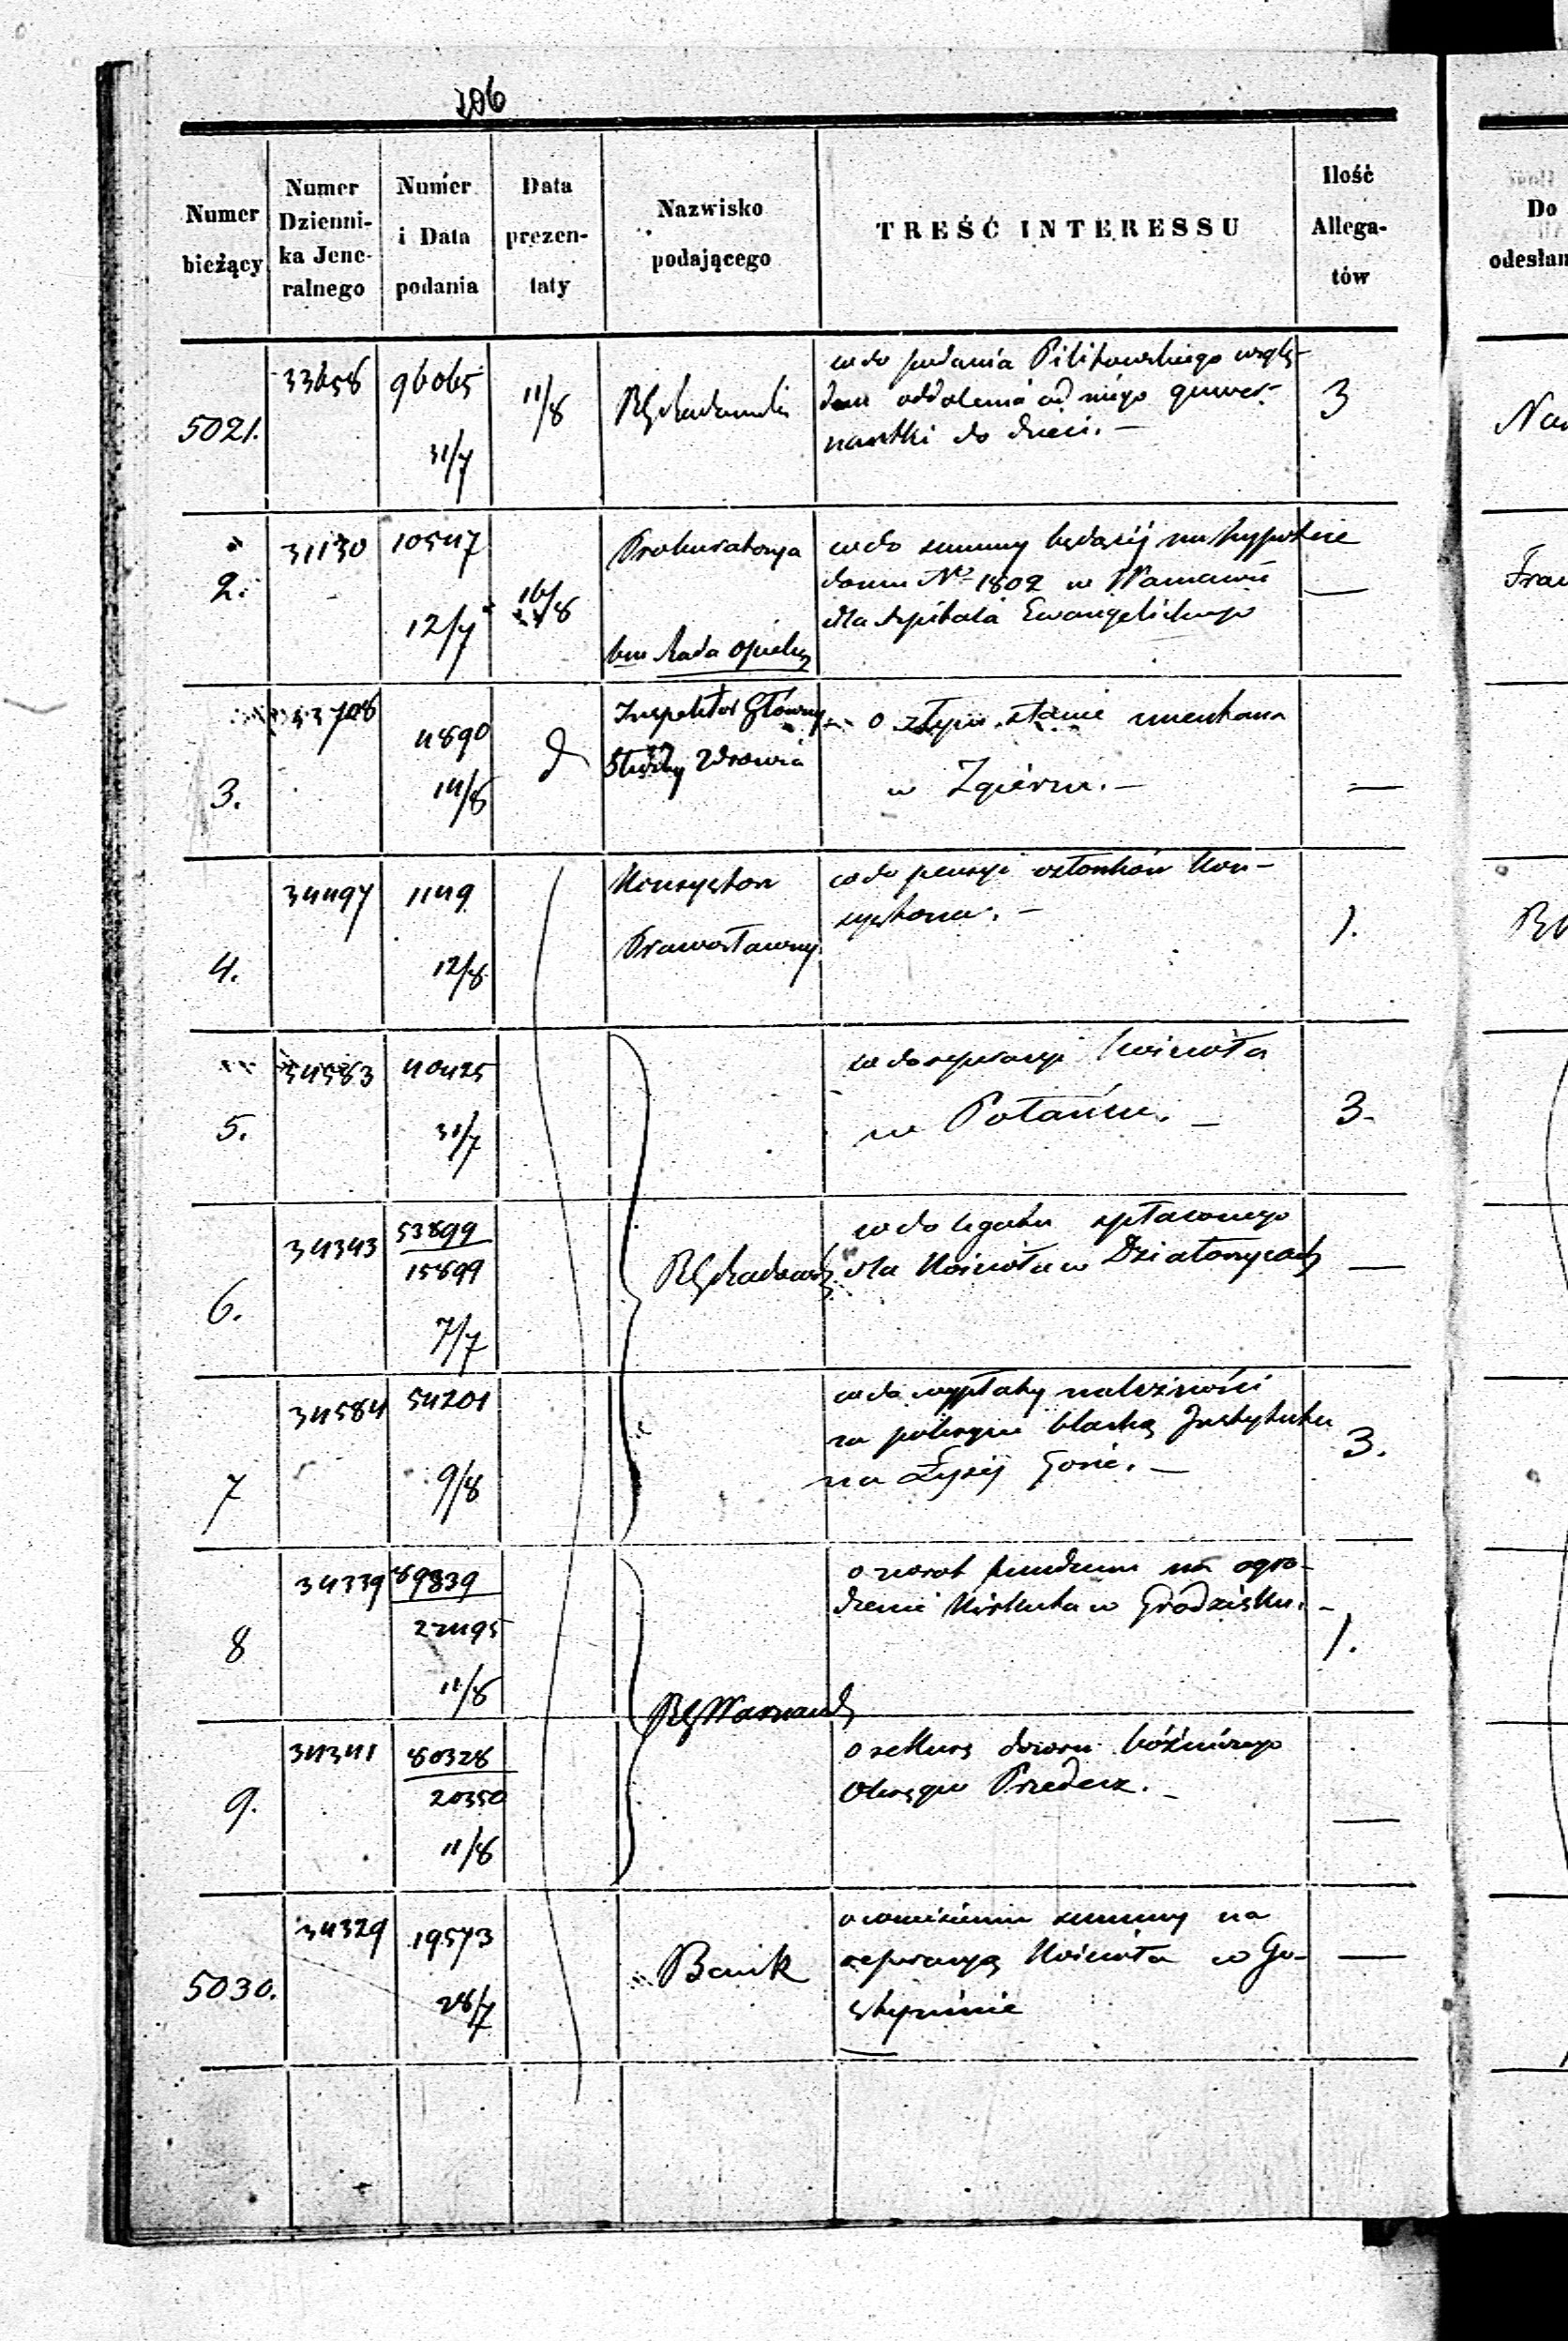 106
Numer bieżący
Numer Dzienni-
ka Jene-
ralnego
Numer i Data podania
Data prezen-
taty
Nazwisko podającego
TREŚĆ INTERESSU
Ilość Allega-
tów
Do
odesłan
5021.
33658
96065
31/7
11/8
co do podania Pilitowskiego wzglę-
dem oddalenia od niego guwer-
nantki do dzieci. —
3
2.
31130
10547
12/7
16/8
Prokuratorya
Rada Opiek
co do summy będącéj na hypotece
domu No 1802 w Warszawie
dla szpitala Ewangelickiego
—
3.
33708
4890
14/8
d
Inspektor Główny
Służby Zdrowia
o złym stanie
w Zgierzu. —
—
4.
34497
1149
12/8
Konsystorz
Prawosławny
co do pensyi członków Kon-
systorza. —
1.
5.
34583
40425
31/7
co do reperacyi Kościoła
—
3.
6.
34343
53899
15899
7/7
RG Radomski
co do legatu spłaconego
dla Kościoła w Działoszycach
—
7
34584
54201
9/8
co do wypłaty należności
za pokrycie blachą Instytutu
na Łysej Górze. —
3.
8
34339
89839
22495
11/8
RG Warszawski
o zwrot funduszu na ogro-
dzenie Kirkuta w Grodzisku. —
1.
9.
34341
80328
20350
11/8
o rekurs dozoru bóżniczego
Okręgu Przedecz. —
—
5030.
34329
19573
28/7
Bank
summy na
reperacyą Kościoła w Go-
styninie
—